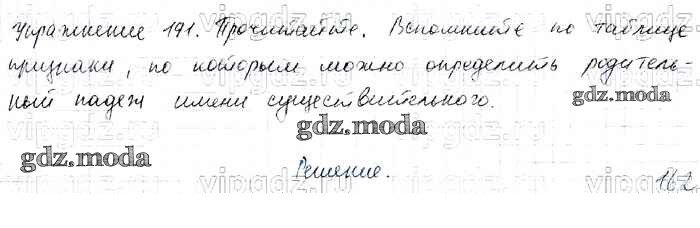 Упражнение 191. Прочитайте. Вспомните по таблице
признаки, по которым можно определить родитель-
ный падеж имени существительного.
gdz.moda
gdz.moda
gdz.moda
Решение.
162
vipgdz.ru
vipgdz.ru
vipgdz.ru
vipgdz.ru